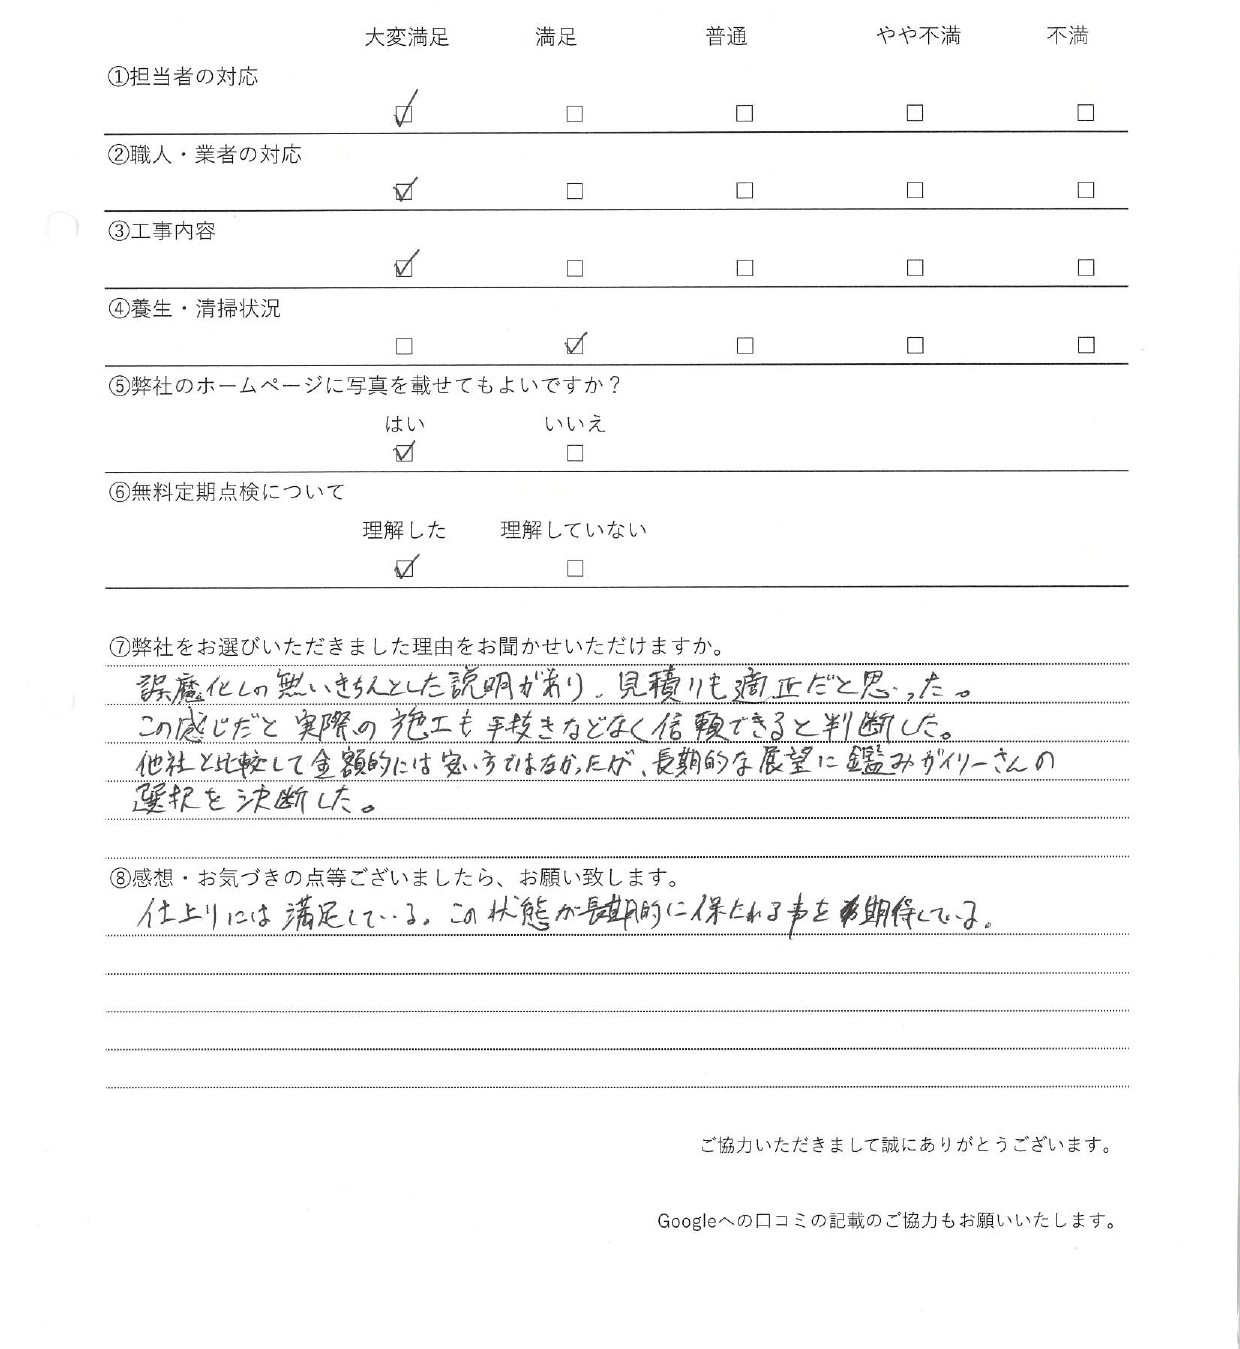 大変満足 満足 普通 やや不満 不満
①担当者の対応
☑ □ □ □ □
②職人・業者の対応
☑ □ □ □ □
③工事内容
☑ □ □ □ □
④養生・清掃状況
□ ☑ □ □ □
⑤弊社のホームページに写真を載せてもよいですか？
はい いいえ
☑ □
⑥無料定期点検について
理解した 理解していない
☑ □
⑦弊社をお選びいただきました理由をお聞かせいただけますか。
誤魔化しの無いきちんとした説明があり、見積りも適正だと思った。
この感じだと実際の施工も手抜きなどなく信頼できると判断した。
他社と比較して金額的には安い方ではなかったが、長期的な展望に鑑みガイソーさんの
選択を決断した。
⑧感想・お気づきの点等ございましたら、お願い致します。
仕上りには満足している。この状態が長期的に保たれる事を期待している。
ご協力いただきまして誠にありがとうございます。
Googleへの口コミの記載のご協力もお願いいたします。